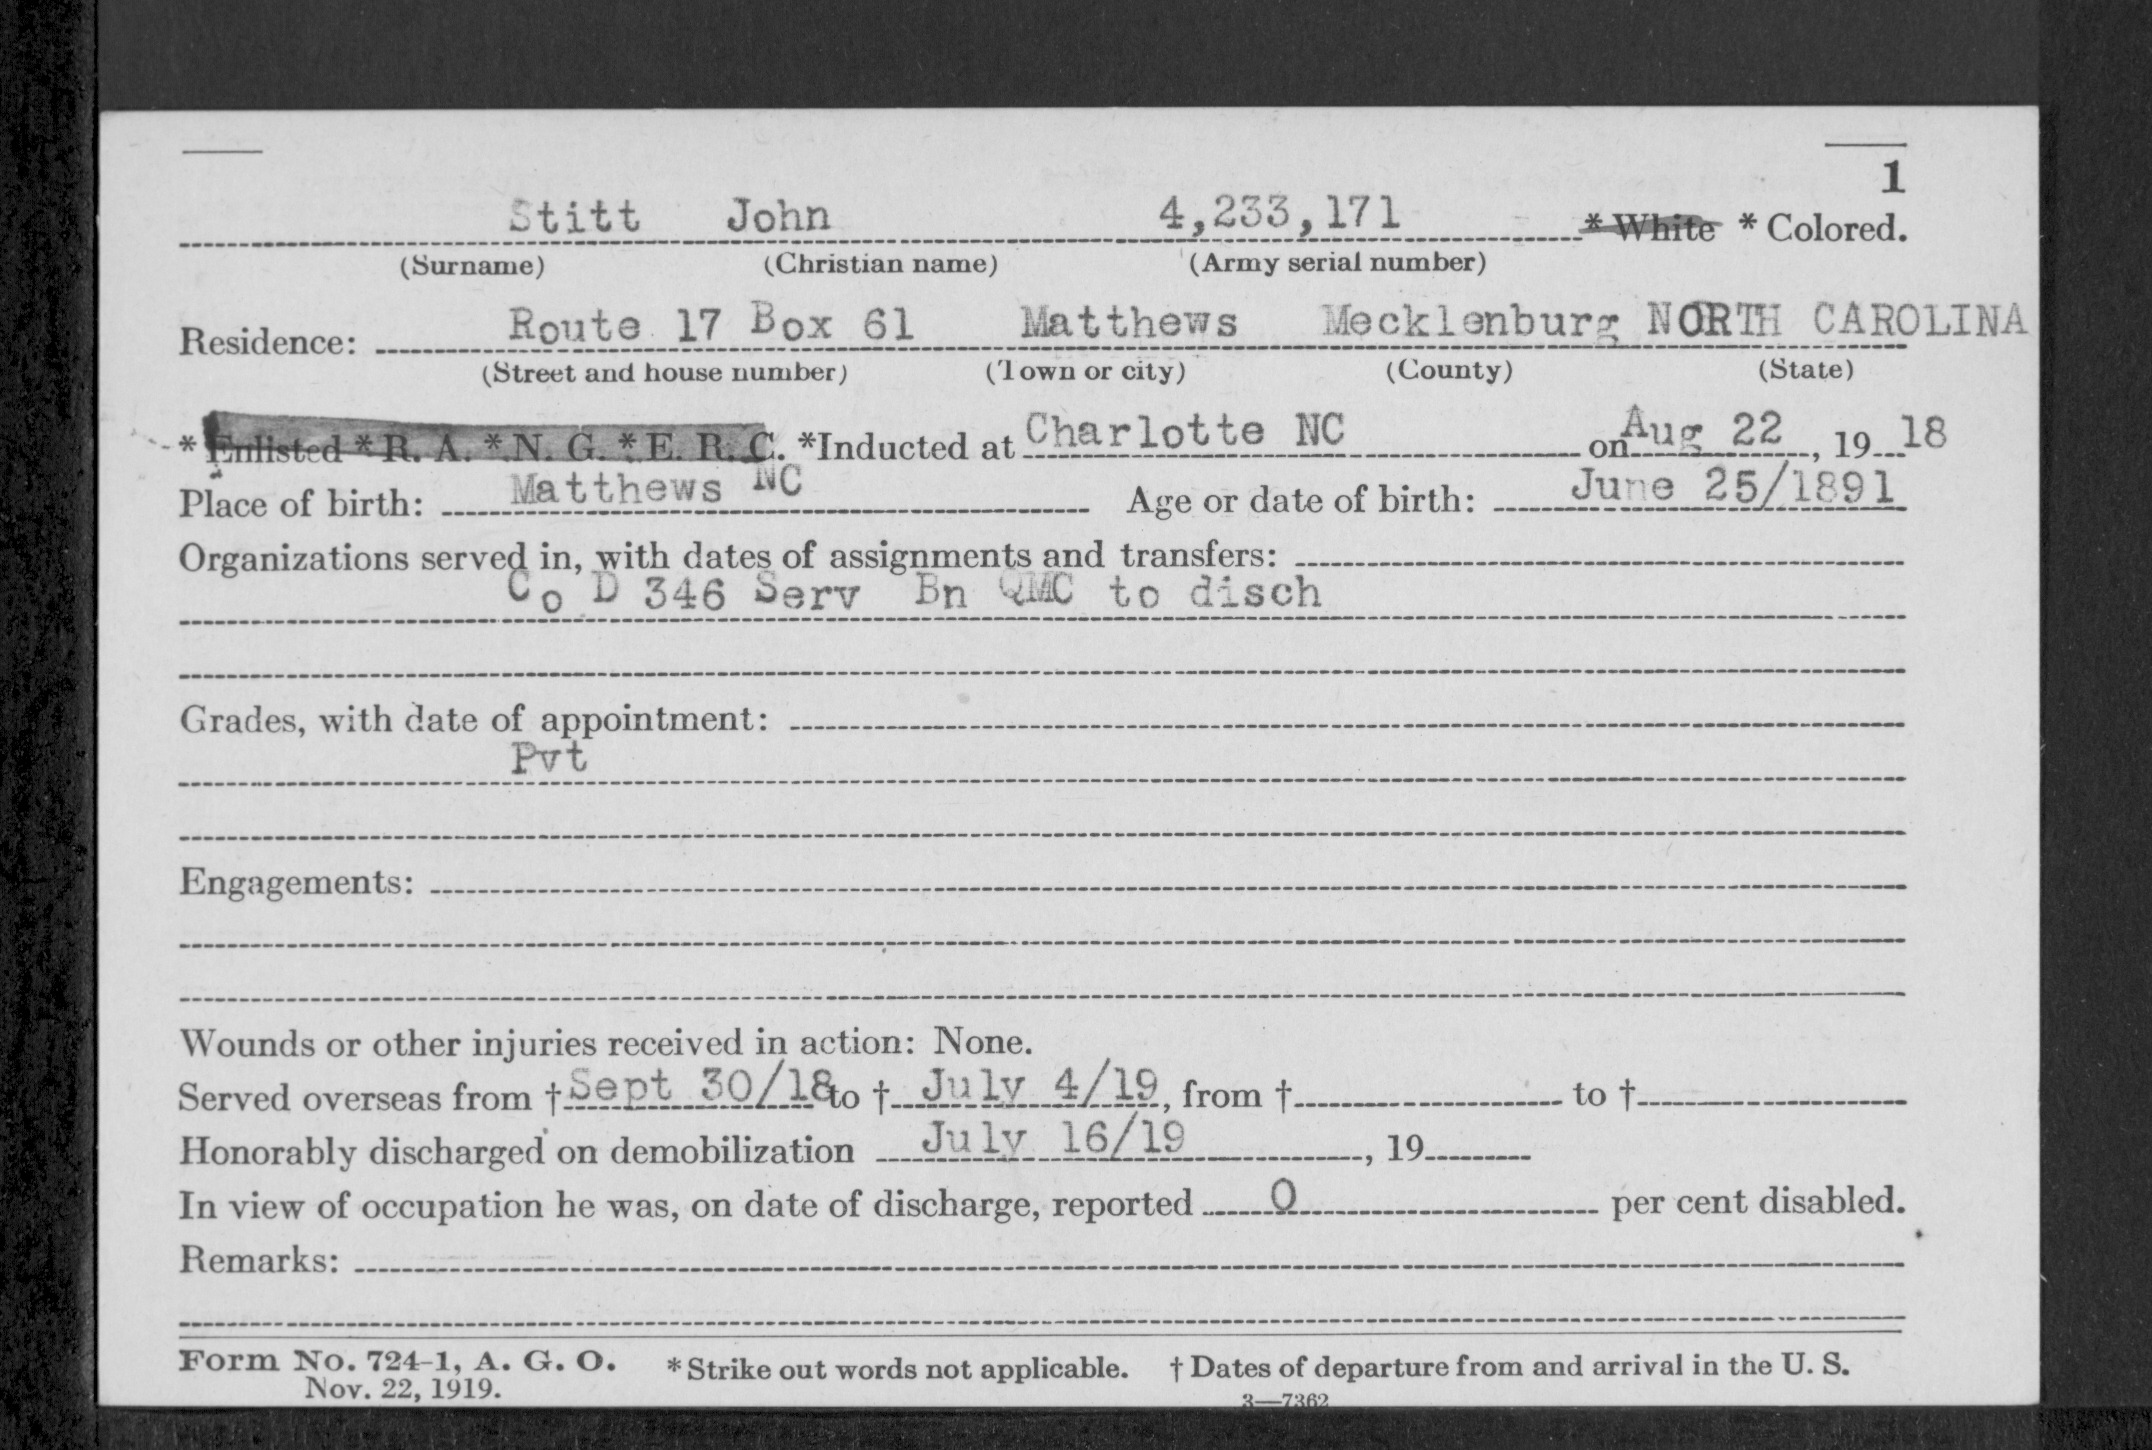 1
Stitt John 4,233,171 * White * Colored.
(Surname) (Christian name) (Army serial number)
Residence: Route 17 Box 61 Matthews Mecklenburg NORTH CAROLINA
(Street and house number) (Town or city) (County) (State)
* Enlisted * R. A. * N. G. * E. R. C. *Inducted at Charlotte NC on Aug 22, 19 18
Place of birth: Matthews NC Age or date of birth: June 25/1891
Organizations served in, with dates of assignments and transfers:
Co D 346 Serv Bn QMC to disch
Grades, with date of appointment:
Pvt
Engagements:
Wounds or other injuries received in action: None.
Served overseas from † Sept 30/18 to † July 4/19, from † to †
Honorably discharged on demobilization July 16/19, 19
In view of occupation he was, on date of discharge, reported 0 per cent disabled.
Remarks:
Form No. 724-1, A. G. O. * Strike out words not applicable. † Dates of departure from and arrival in the U. S.
Nov. 22, 1919. 3—7362